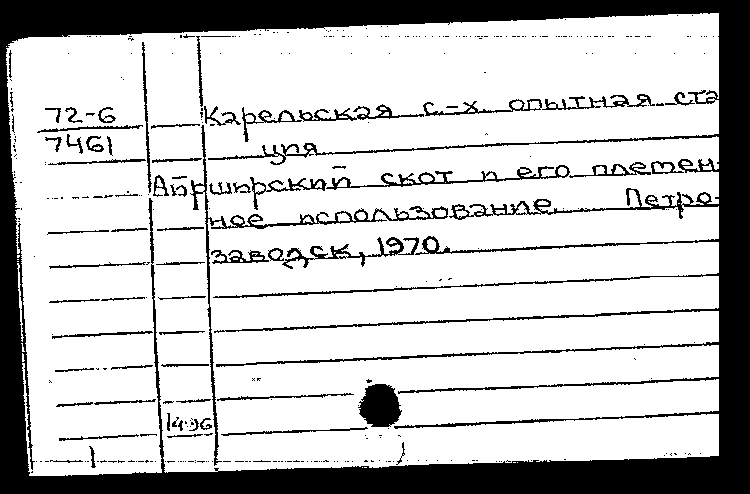 72-6
7461
Карельская с.-х. опытная ста
ция
Айрширский скот и его племен-
ное использование. Петро-
заводск, 1970.
1496
1